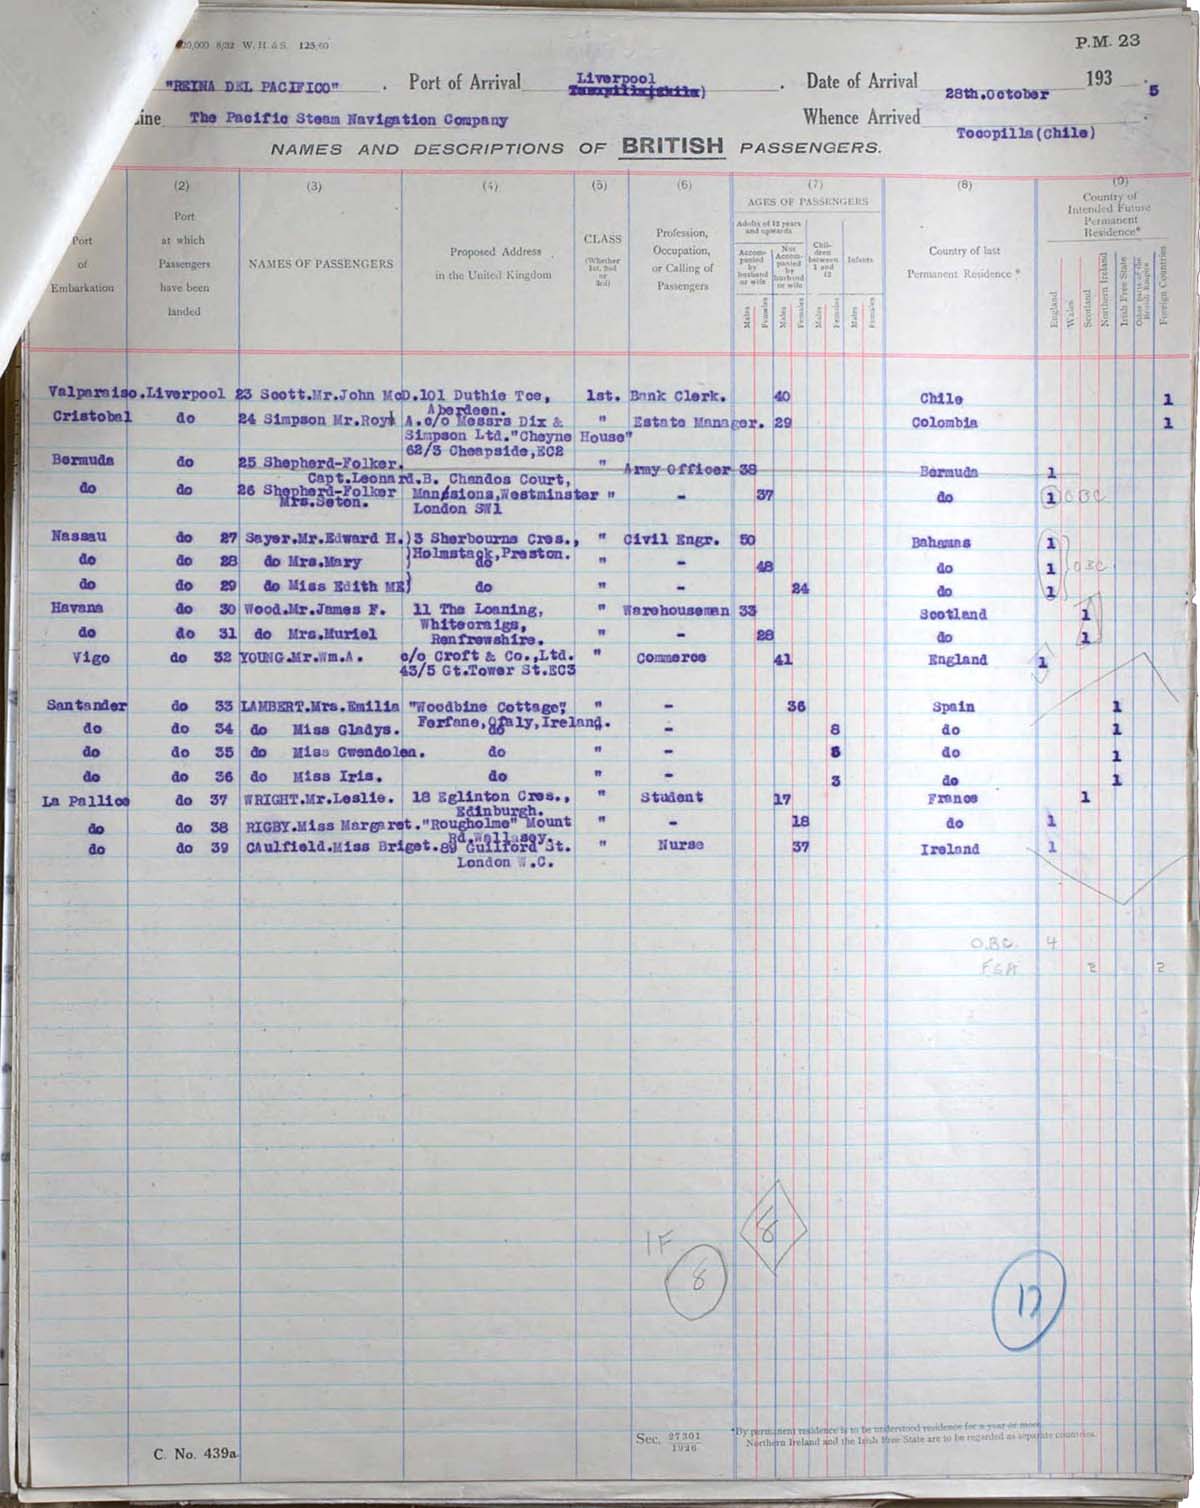 20,000 8/32 W. H. & S. 125/60
P.M. 23
"REINA DEL PACIFICO" . Port of Arrival Liverpool . Date of Arrival 28th.October 193 5
ine The Pacific Steam Navigation Company Whence Arrived Tocopilla(Chile)
NAMES AND DESCRIPTIONS OF BRITISH PASSENGERS.
(2) (3) (4) (5) (6) (7) (8) (9)
Port of Embarkation
Port at which Passengers have been landed
NAMES OF PASSENGERS
Proposed Address in the United Kingdom
CLASS (Whether 1st, 2nd or 3rd)
Profession, Occupation, or Calling of Passengers
AGES OF PASSENGERS
Adults of 12 years and upwards
Accompanied by husband or wife
Not Accompanied by husband or wife
Children between 1 and 12
Infants
Males Females Males Females Males Females Males Females
Country of last Permanent Residence *
Country of Intended Future Permanent Residence*
England Wales Scotland Northern Ireland Irish Free State Other parts of the British Empire Foreign Countries
Valparaiso.Liverpool 23 Scott.Mr.John McD.101 Duthie Tce, 1st. Bank Clerk. 40 Chile 1
Aberdeen.
Cristobal do 24 Simpson Mr.Roy A.c/o Messrs Dix & " Estate Manager. 29 Colombia 1
Simpson Ltd."Cheyne House"
62/3 Cheapside,EC2
Bermuda do 25 Shepherd-Folker. " Army Officer 38 Bermuda 1
Capt.Leonard.B. Chandos Court,
do do 26 Shepherd-Folker Mansions,Westminster " - 37 do 1 OBC
Mrs.Seton. London SW1
Nassau do 27 Sayer.Mr.Edward H.)3 Sherbourne Cres., " Civil Engr. 50 Bahamas 1
Holmstack,Preston.
do do 28 do Mrs.Mary ) do " - 48 do 1 OBC
do do 29 do Miss Edith ME) do " - 24 do 1
Havana do 30 Wood.Mr.James F. 11 The Loaning, " Warehouseman 33 Scotland 1
Whitecraigs,
do do 31 do Mrs.Muriel Renfrewshire. " - 28 do 1
Vigo do 32 YOUNG.Mr.Wm.A. c/o Croft & Co.,Ltd. " Commerce 41 England 1
43/5 Gt.Tower St.EC3
Santander do 33 LAMBERT.Mrs.Emilia "Woodbine Cottage", " - 36 Spain 1
Ferfane,Ofaly,Ireland.
do do 34 do Miss Gladys. do " - 8 do 1
do do 35 do Miss Gwendolen. do " - do 1
do do 36 do Miss Iris. do " - 3 do 1
La Pallice do 37 WRIGHT.Mr.Leslie. 18 Eglinton Cres., " Student 17 France 1
Edinburgh.
do do 38 RIGBY.Miss Margaret."Rougholme" Mount " - 18 do 1
Rd.Wallasey.
do do 39 CAulfield.Miss Briget.89 Guilford St. " Nurse 37 Ireland 1
London W.C.
O.B.C. 4
2 2
1F
8
8
17
C. No. 439a
Sec. 27301/1926
*By permanent residence is to be understood residence for a year or more.
Northern Ireland and the Irish Free State are to be regarded as separate countries.